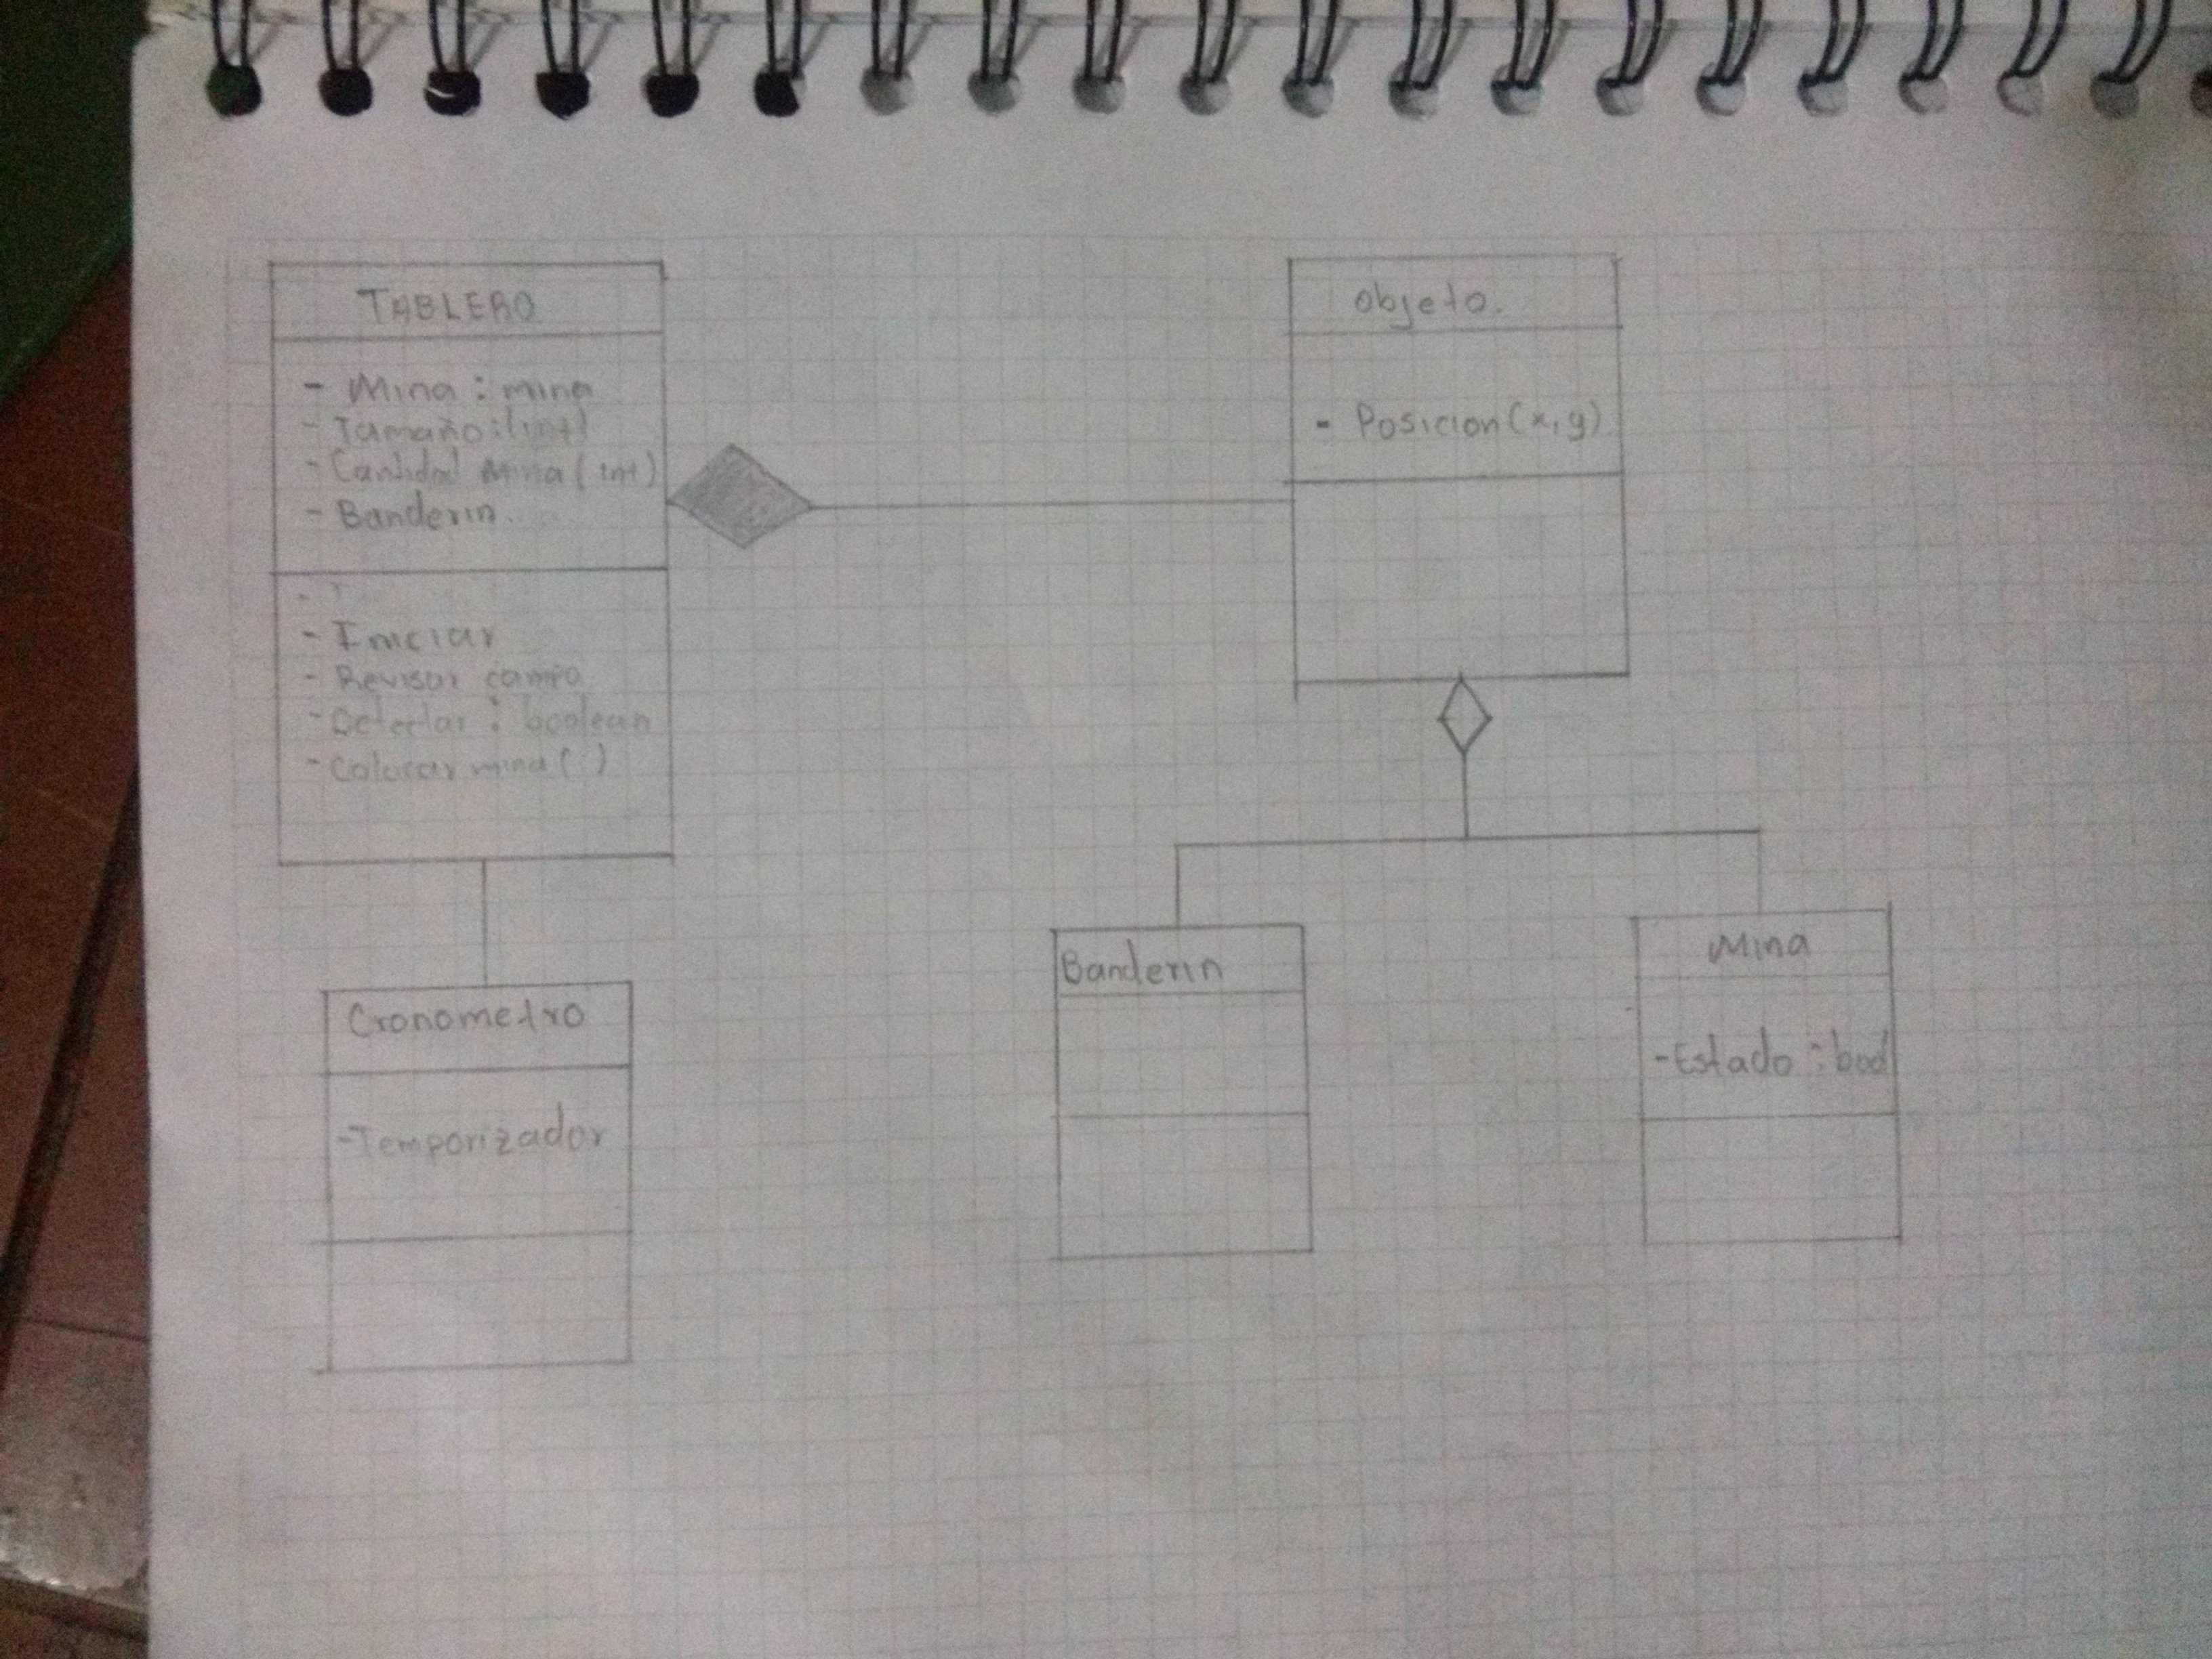 TABLERO
- Mina : mina
- Tamaño:(int)
- Cantidad Mina (int)
- Banderin.
- Iniciar
- Revisar campo
- Detectar : boolean
- Colocar mina ( )
Objeto.
- Posicion(x,y)
Cronometro
-Temporizador
Banderin
Mina
-Estado : bool